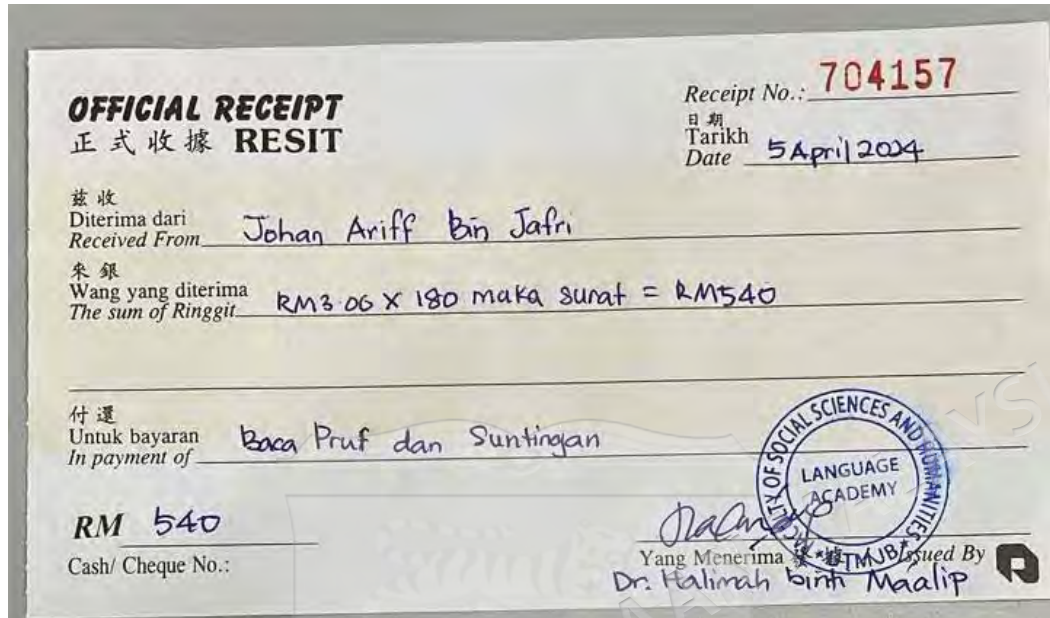 OFFICIAL RECEIPT
正式收據 RESIT
Receipt No.: 704157
日期
Tarikh
Date 5 April 2024
茲收
Diterima dari
Received From Johan Ariff Bin Jafri
來銀
Wang yang diterima
The sum of Ringgit RM3.00 X 180 maka surat = RM540
付還
Untuk bayaran
In payment of Baca Pruf dan Suntingan
FACULTY OF SOCIAL SCIENCES AND HUMANITIES
LANGUAGE
ACADEMY
*UTMJB*
RM 540
Cash/ Cheque No.:
Yang Menerima Issued By
Dr. Halimah binti Maalip